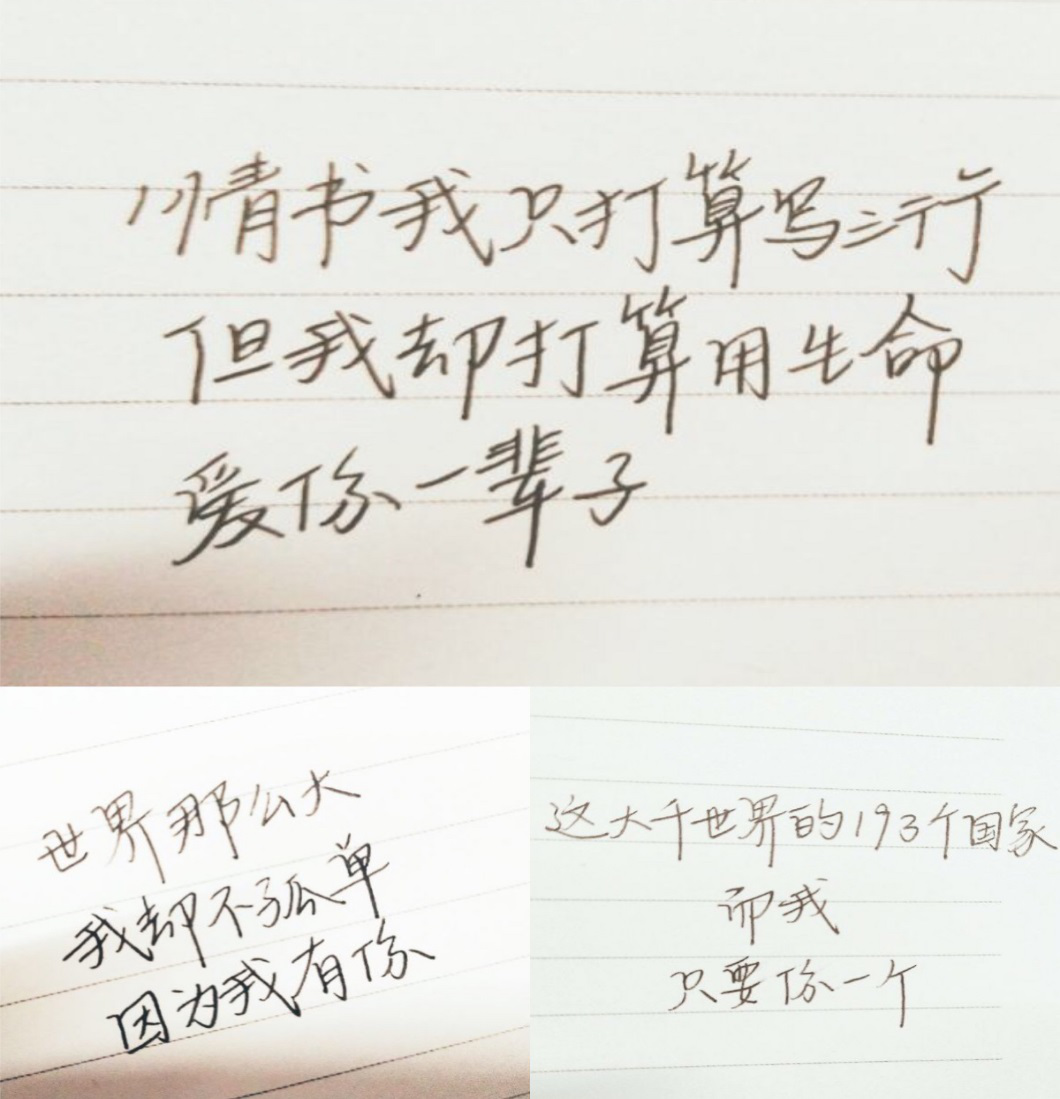 情书我只打算写三行
但我却打算用生命
爱你一辈子
世界那么大
我却不孤单
因为我有你
这大千世界的193个国家
而我
只要你一个